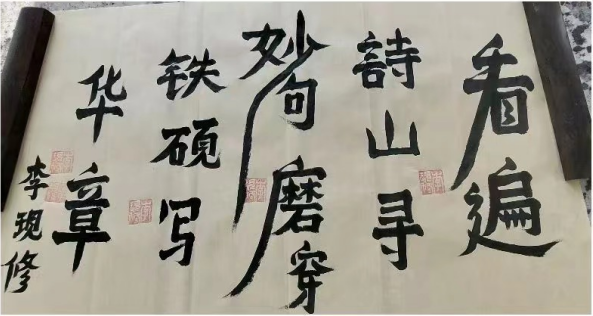 看遍
詩山寻
妙句磨穿
铁硕写
华章
李現修